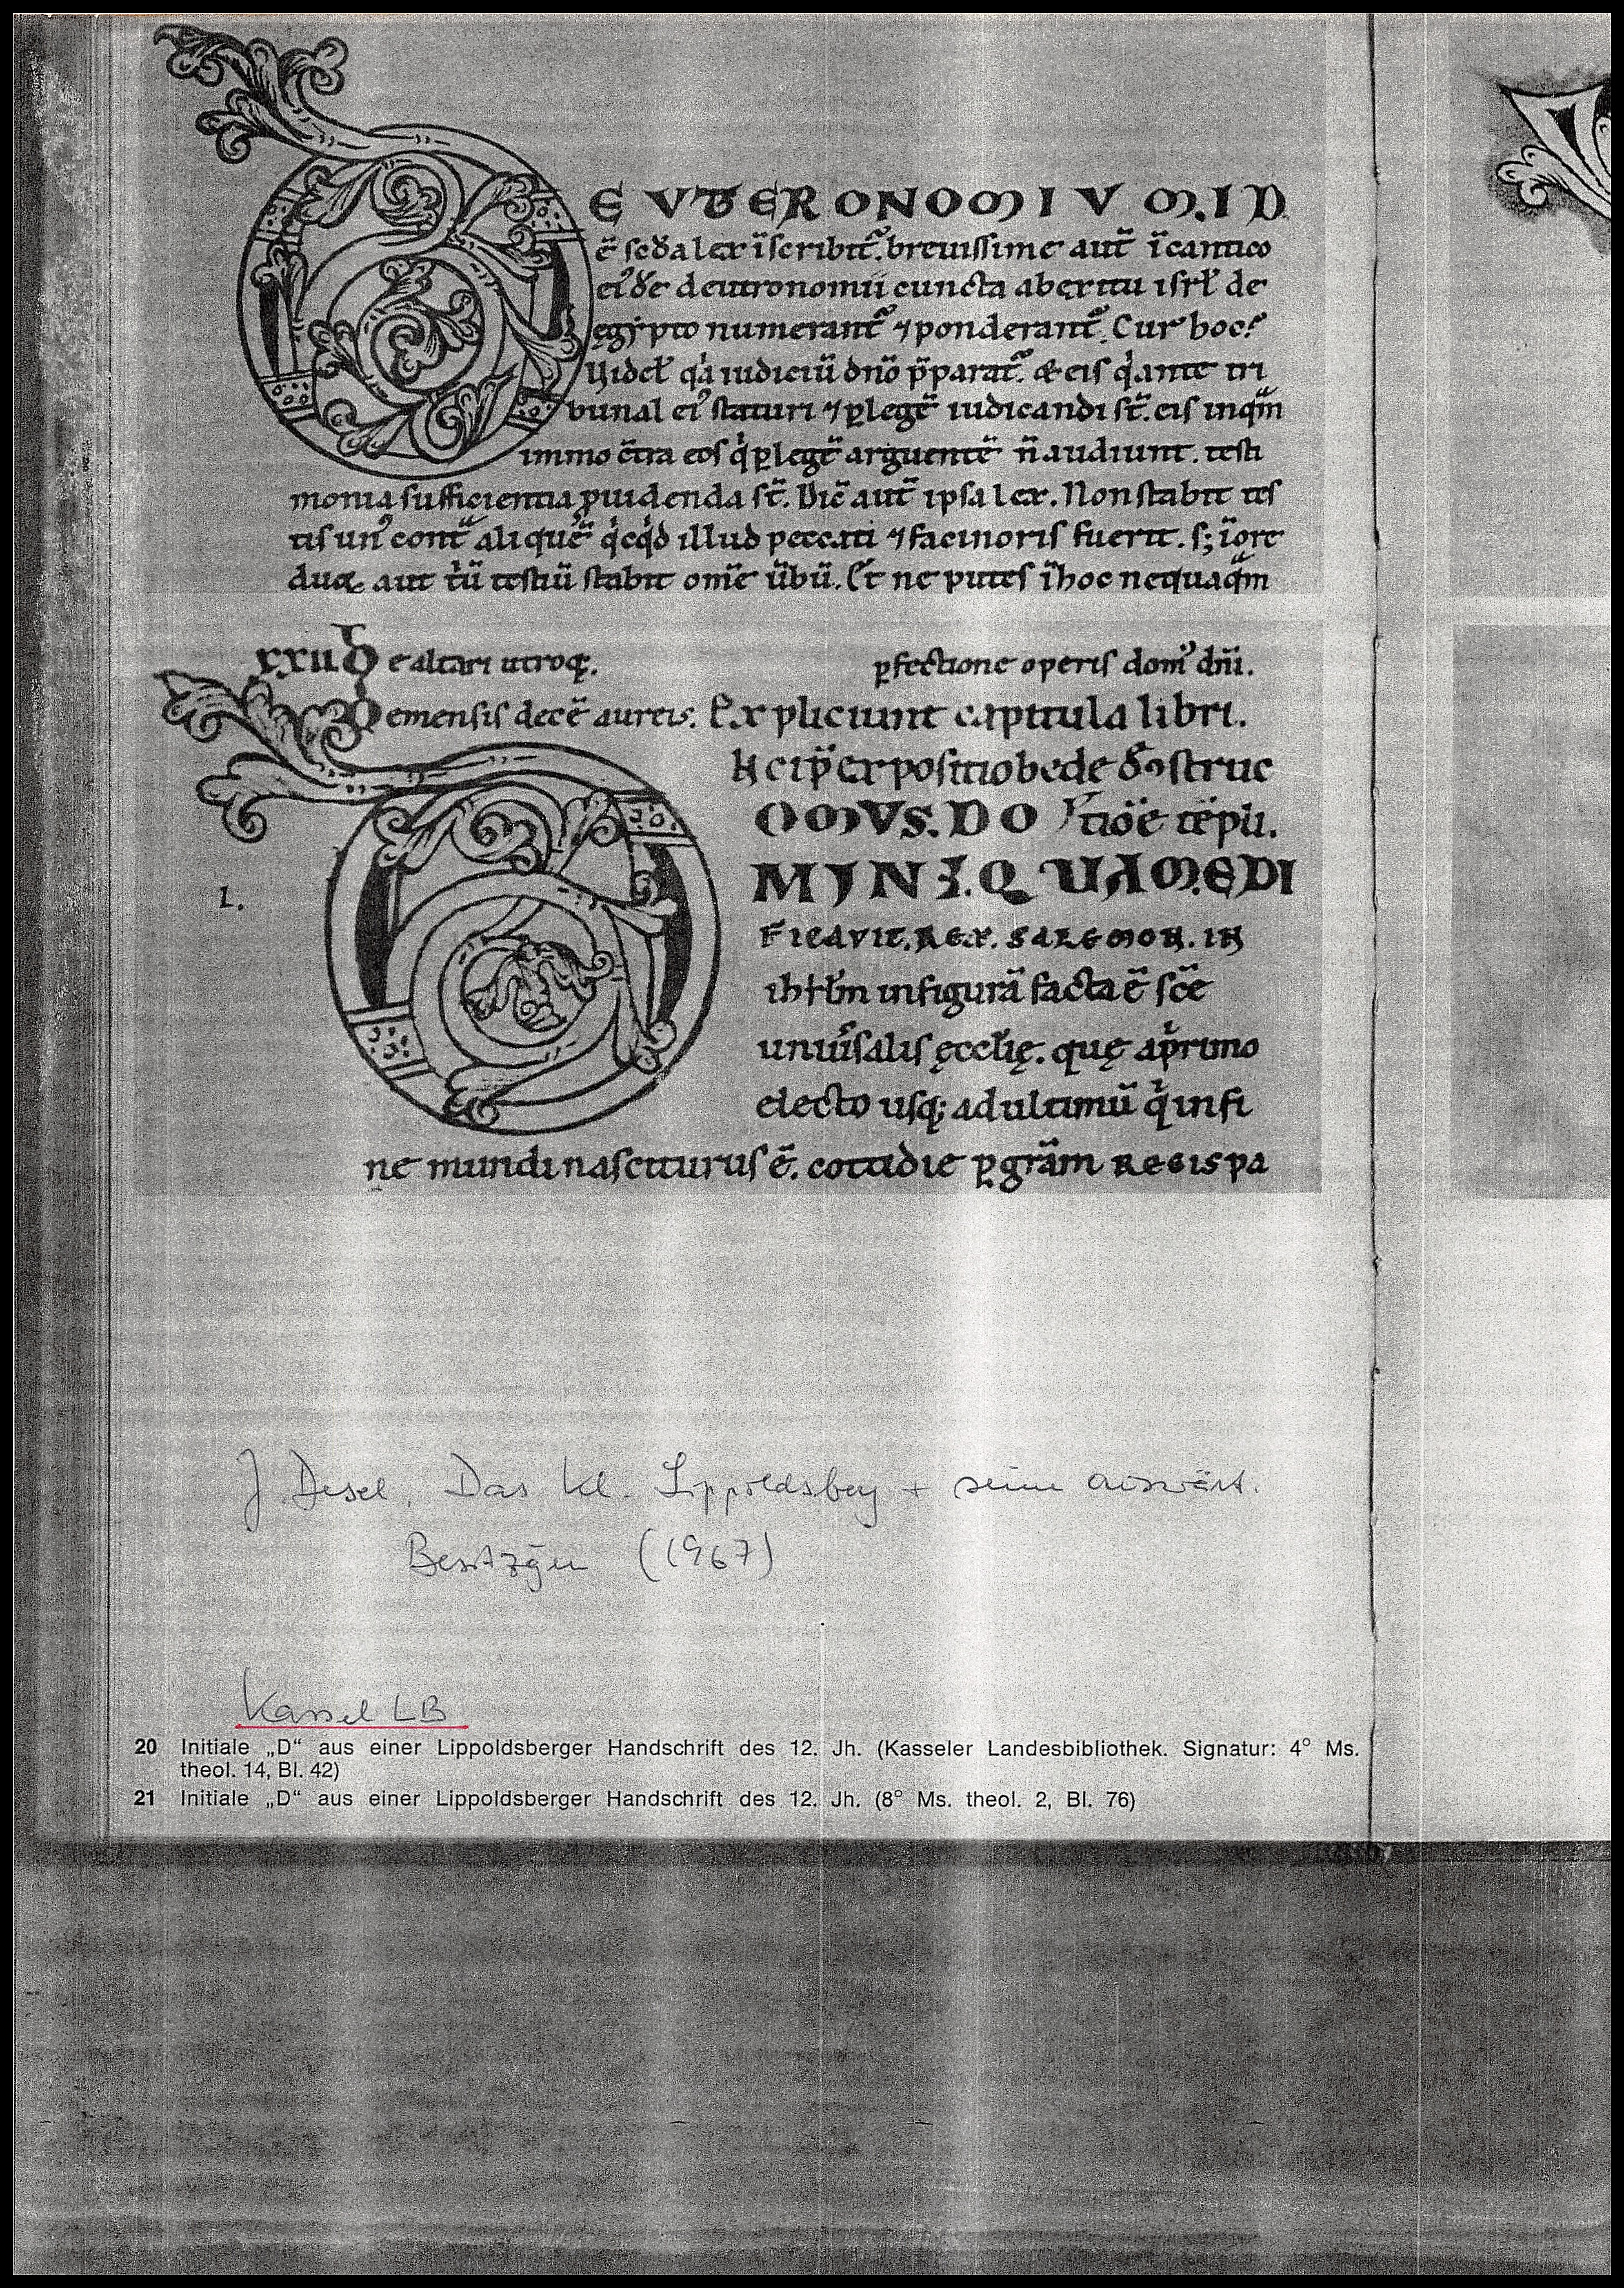 EVTERONOMIVM.ID
ē scďa lex ïscribit᷑. breuissime aut̄ ï cantico
ei᷒ďe deutronomii cuncta ab exitu isrł de
egypto numerant᷑ ⁊ ponderant᷑. Cur hoc?
Uidel̄ q̇a iudiciū dn̄o p̄parat᷑. & eis q̇ ante tri
bunal ei᷒ staturi ⁊ ꝑ legē iudicandi st̄. eis inqͣm
immo c̄tra eos q̇ ꝑ legē arguentē n̄ audiunt. testi
monia sufficientia ꝓuidenda st̄. Dic̄ aut̄ ipsa lex. Non stabit tes
tis un᷒ contͣ aliquē q̇cq̇d illud peccati ⁊ facinoris fuerit. s; ï ore
duoꝝ aut t̍ū testiū stabit om̄e ūbū. Et ne putes ï hoc nequaqͣm
xxu De altari utroq;. ꝑfectione operis dom᷒ dn̄i.
De mensis decē aureis. Expliciunt capitula libri.
Incip̄ expositio bede ď ɔstruc
DOMVS.DO tiōe tēpli.
MINI.QUAM.EDI
FICAVIT.REX.SALEMON.IN
ihrłm in figurā facta ē scē
uniūsalis ęcclię. quę a p̍mo
1.
electo usq; ad ultimū q̇ in fi
ne mundi nasciturus ē. cottidie ꝑ gr̄am REGIS pa
J. Desel, Das Kl. Lippoldsberg + seine auswärt.
Besitzg̅en (1967)
Kassel LB
20 Initiale „D“ aus einer Lippoldsberger Handschrift des 12. Jh. (Kasseler Landesbibliothek. Signatur: 4° Ms.
theol. 14, Bl. 42)
21 Initiale „D“ aus einer Lippoldsberger Handschrift des 12. Jh. (8° Ms. theol. 2, Bl. 76)